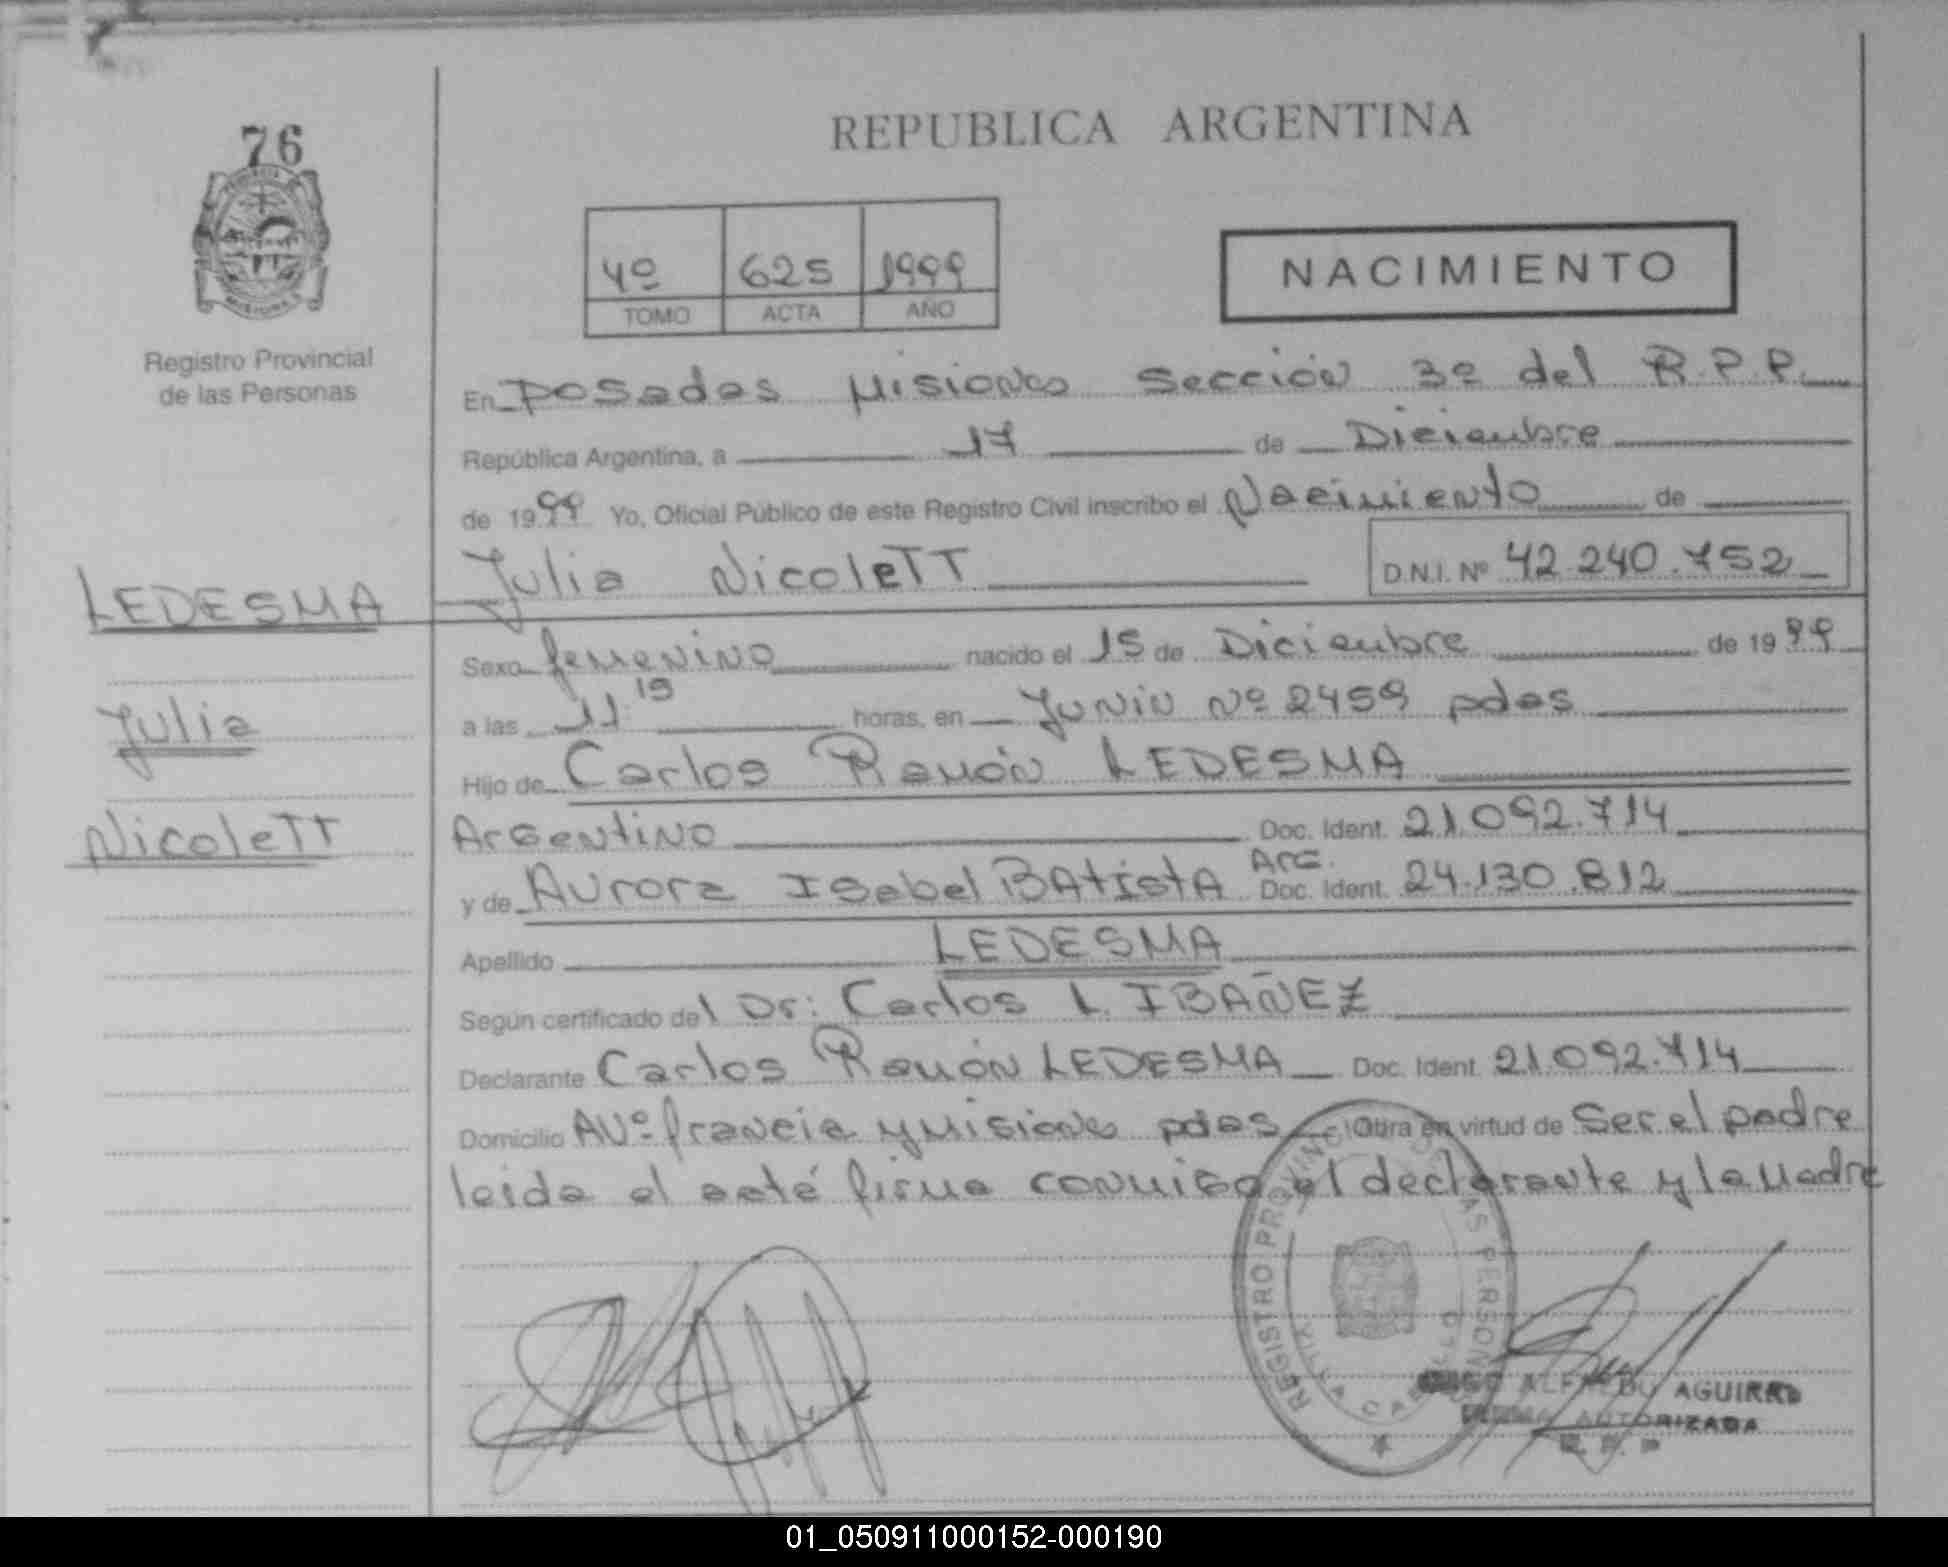 76
Registro Provincial
de las Personas
LEDESMA
Julia
NicoleTT
REPUBLICA ARGENTINA
4º 625 1999
TOMO ACTA AÑO
NACIMIENTO
En Posadas Misiones Sección 3º del R.P.P.
República Argentina, a 17 de Diciembre
de 1999 Yo, Oficial Público de este Registro Civil inscribo el Nacimiento de
Julia NicoleTT D.N.I. Nº 42.240.752
Sexo femenino nacido el 15 de Diciembre de 1999
a las 11 15 horas, en Junin Nº 2459 pdas
Hijo de Carlos Ramón LEDESMA
Argentino Doc. Ident. 21.092.714
y de Aurora Isabel BAtistA Arg. Doc. Ident. 24.130.812
Apellido LEDESMA
Según certificado del Dr: Carlos L. IBAÑEZ
Declarante Carlos Ramón LEDESMA Doc. Ident. 21.092.714
Domicilio AVº francia y Misiones pdas Obra en virtud de Ser el padre
leida el acta firma conmigo el declarante y la Madre
REGISTRO PROVINCIAL DE LAS PERSONAS
VILLA CABELLO
ALFREDO AGUIRRE
FIRMA AUTORIZADA
R. P. P
01_050911000152-000190